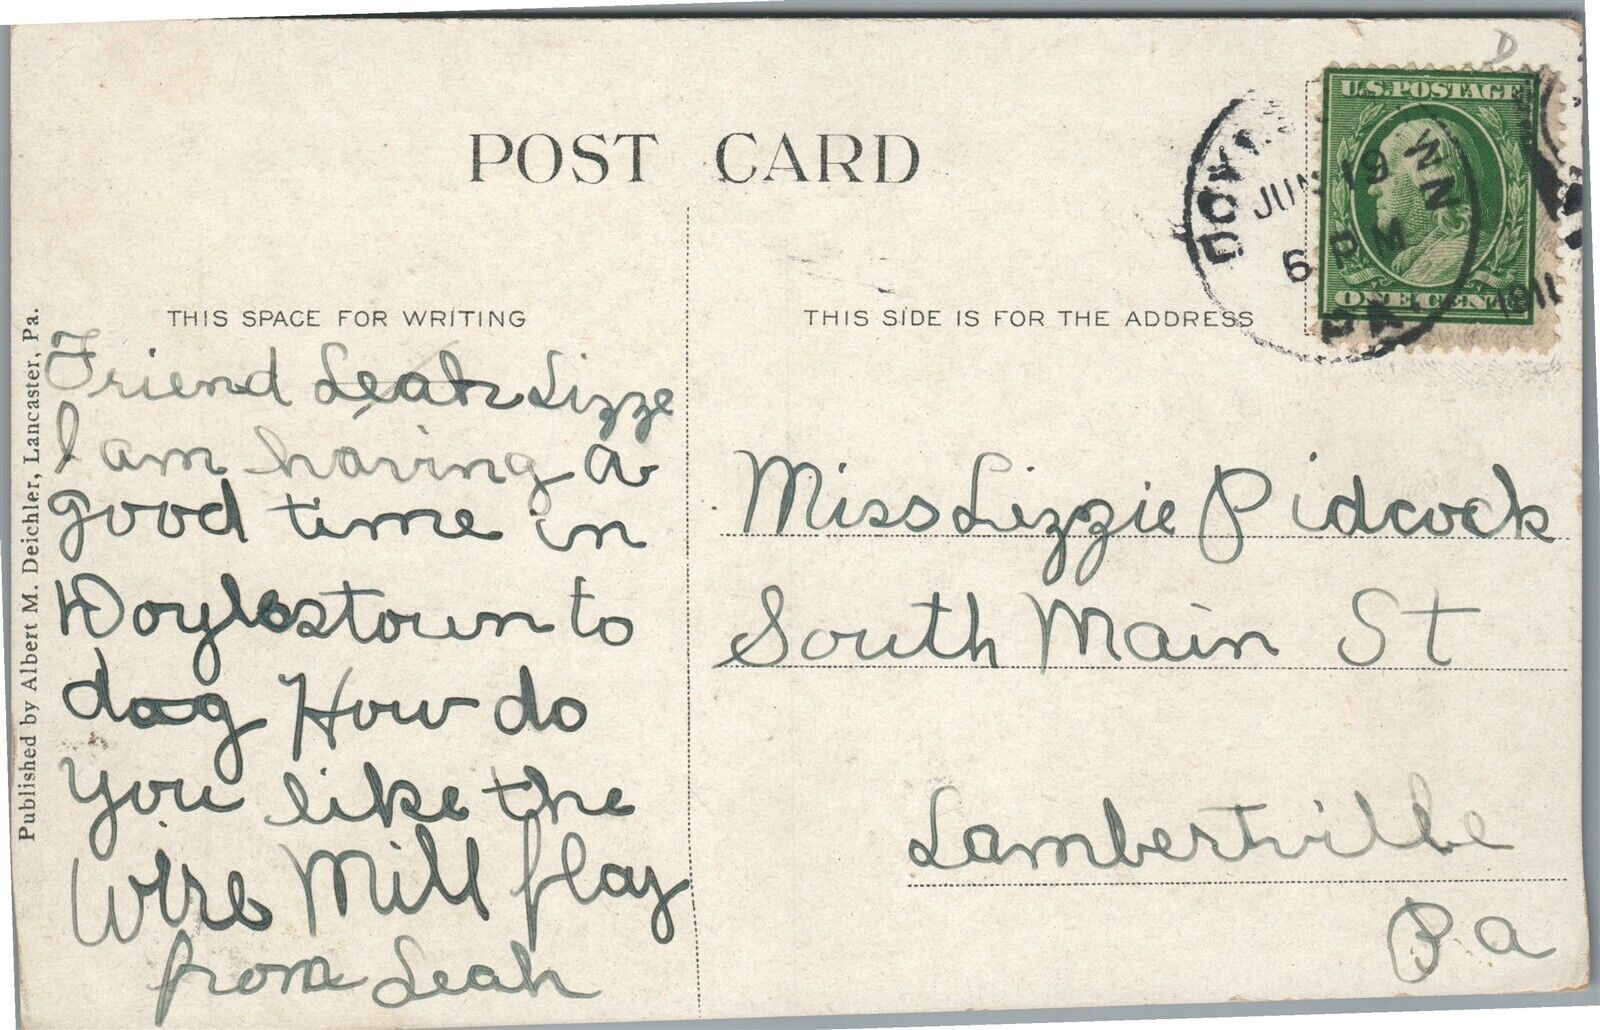 POST CARD
THIS SPACE FOR WRITING
Friend Leah Lizze
I am having a
good time in
Doylestown to
day How do
you like the
Wire Mill flag
from Leah
Published by Albert M. Deichler, Lancaster, Pa.
THIS SIDE IS FOR THE ADDRESS
Miss Lizzie Pidcock
South Main St
Lambertville
Pa
U.S. POSTAGE
ONE CENT
JUN 19
6 PM
1911
PA.
D